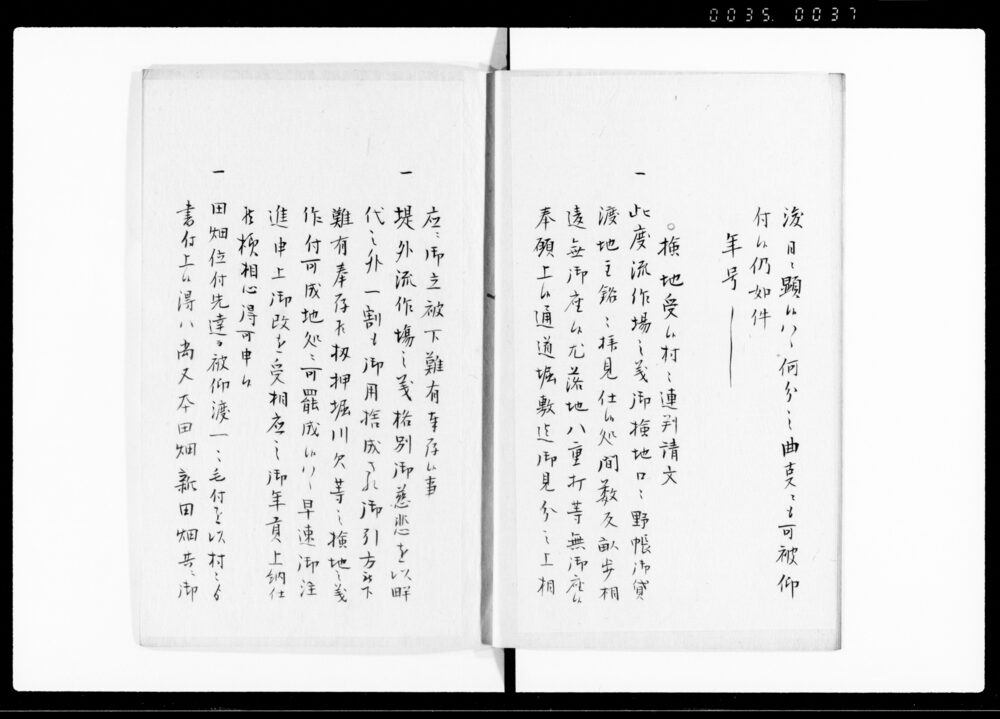 0035. 0037
後日ニ顕候ハヽ何分之曲事ニも可被仰
付候仍如件
年号
○検地受候村々連判請文
一
此度流作場之義御検地口々野帳御貸
渡地主銘々拝見仕候処間数反畝歩相
違無御座候尤落地八重打等無御座候
奉願上候通道堀敷迄御見分之上相
応ニ御立被下難有奉存候事
一
堤外流作場之義格別御慈悲を以畔
代之外一割も御用捨成され御引方被下
難有奉存候扨押堀川欠等之検地之義
作付可成地処ニ可罷成候ハヽ早速御注
進申上御改を受相応之御年貢上納仕
候様相心得可申候
一
田畑位付先達而被仰渡一々毛付を以村々より
書付上候得ハ尚又本田畑新田畑共ニ御